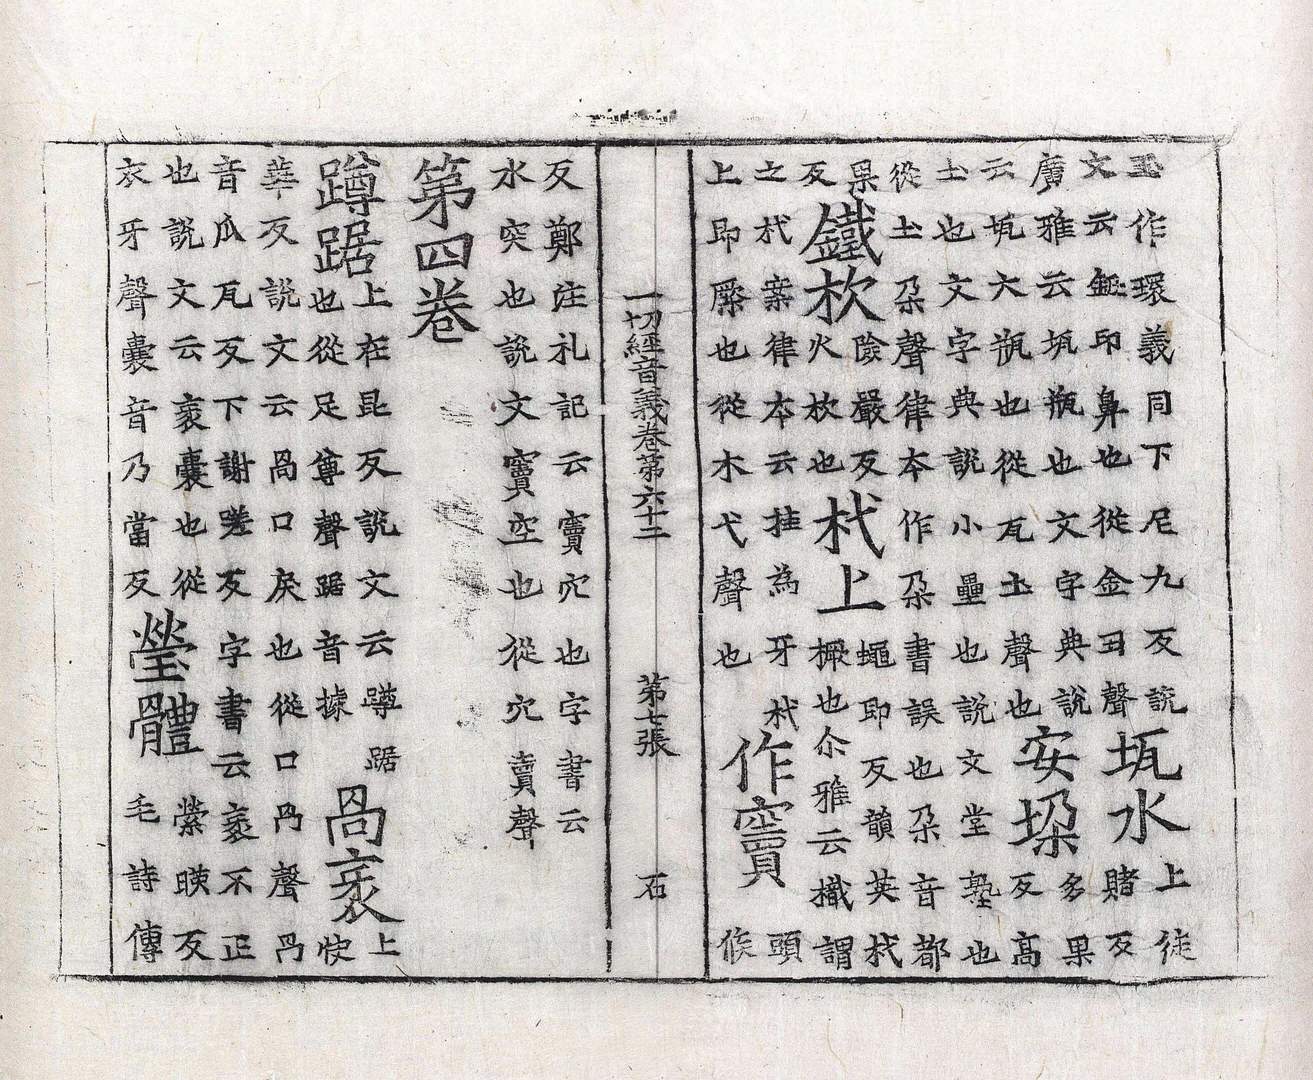 玉作環義同下尼九反說
文云鈕印鼻也從金丑聲
瓨水
上徒
賭反
廣雅云瓨瓶也文字典說
云瓨大瓶也從瓦土聲也
安垜
多果
反髙
士也文字典說小壘也說文堂塾也
從土朶聲律本作朶書誤也朶音都
果
反
鐵杴
險嚴反
火杴也
杙上
蠅即反韻英杙
橛也尒雅云樴謂
之杙案律本云挂為牙杙
上即橜也從木弋聲也
作竇
頭
候
一切經音義卷第六十二 第七張 石
反鄭注礼記云竇穴也字書云
水突也說文竇空也從穴賣聲
第四卷
蹲踞
上在昆反說文云蹲踞
也從足尊聲踞音據
咼衺
上
快
華反說文云咼口戾也從口冎聲冎
音瓜瓦反下謝嗟反字書云衺不正
也說文云衺囊也從
衣牙聲囊音乃當反
瑩體
縈暎反
毛詩傳